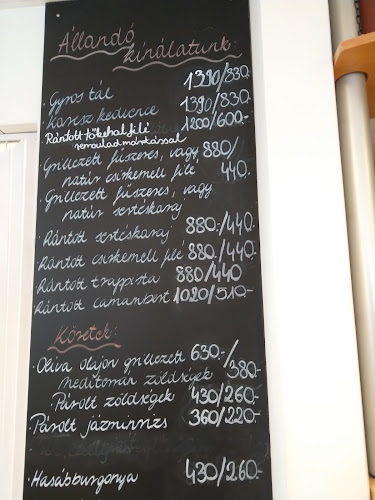 Állandó
kínálatunk:
Gyros tál 1390/830.-
Karesz kedvence 1390/830.-
Rántott tőkehal filé 1200/600.-
remoulad mártással
Grillezett fűszeres, vagy 880/
natúr csirkemell filé 440.-
Grillezett fűszeres, vagy
natúr sertéskaraj
Rántott sertéskaraj 880.-/440.-
Rántott csirkemell filé 880.-/440.-
Rántott trappista 880/440
Rántott camambert 1020/510.-
Köretek:
Oliva olajon grillezett 630.-/
mediterrán zöldségek 380.-
Párolt zöldségek 430/260.-
Párolt jázminrizs 360/220.-
Hasábburgonya 430/260.-